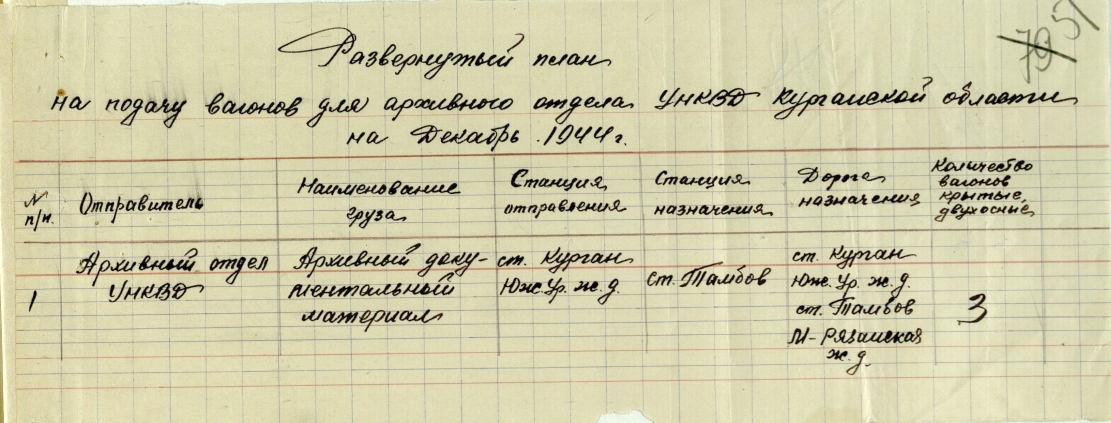 79 51
Развернутый план
на подачу вагонов для архивного отдела УНКВД Курганской области
на Декабрь 1944 г.
N п/п. Отправитель Наименование груза Станция отправления Станция назначения Дорога назначения Количество вагонов крытые, двухосные
1 Архивный отдел УНКВД Архивный доку-ментальный материал ст. Курган Юж. Ур. ж. д. ст. Тамбов ст. Курган Юж. Ур. ж. д. ст. Тамбов М-Рязанская ж. д. 3